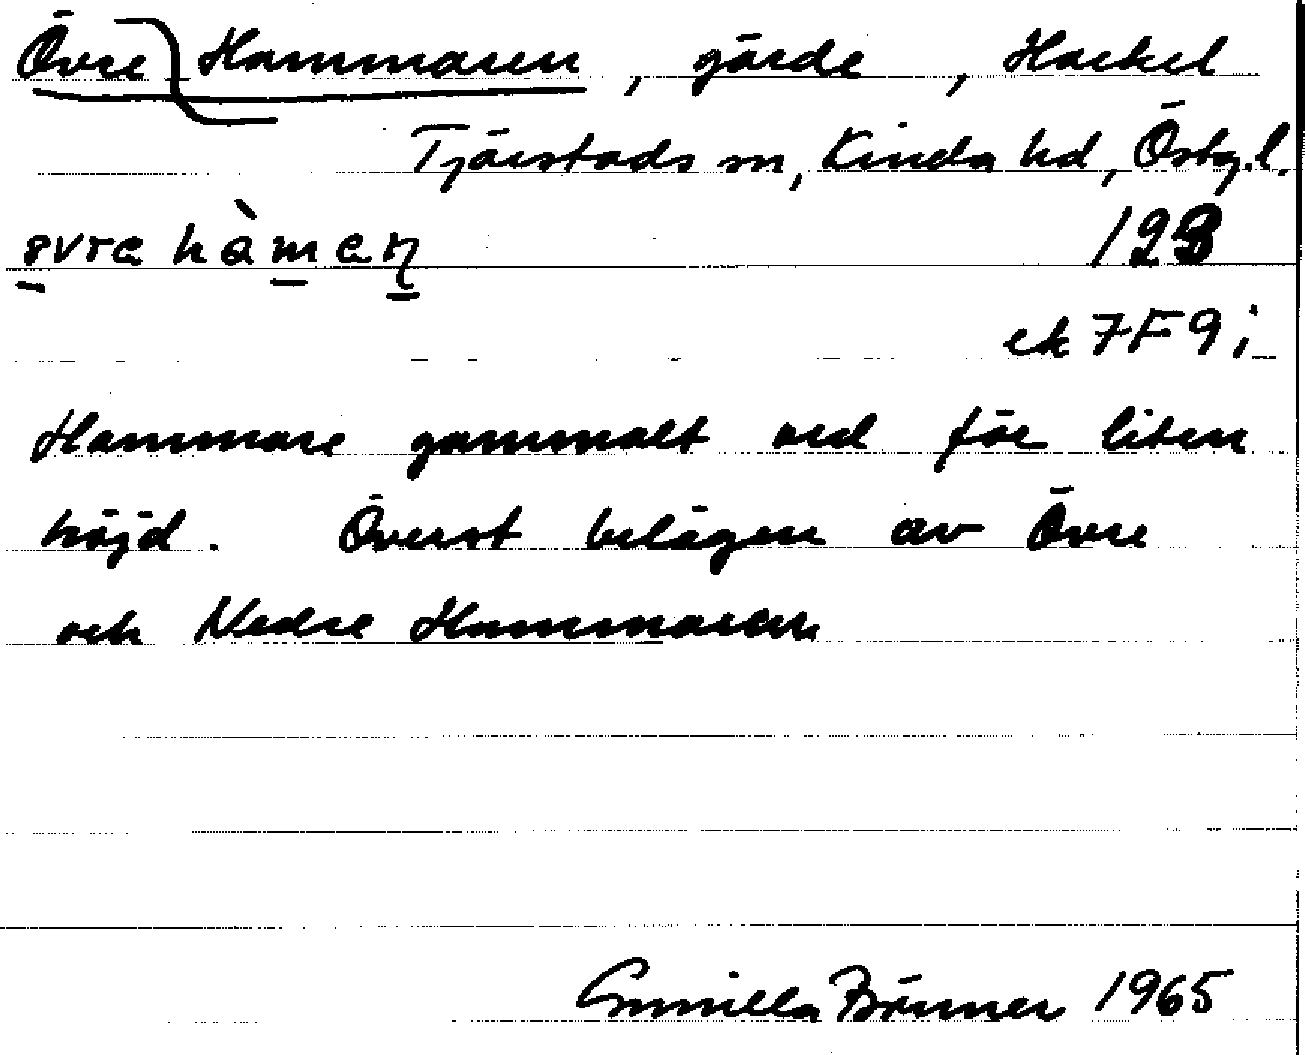 Övre Hammaren, gärde, Hackel
Tjärstads sn, Kinda hd, Östg.l.
ek 7F9i
Hammare gammalt ord för liten
höjd. Överst belägen av Övre
och Nedre Hammaren
Gunilla Brunner 1965